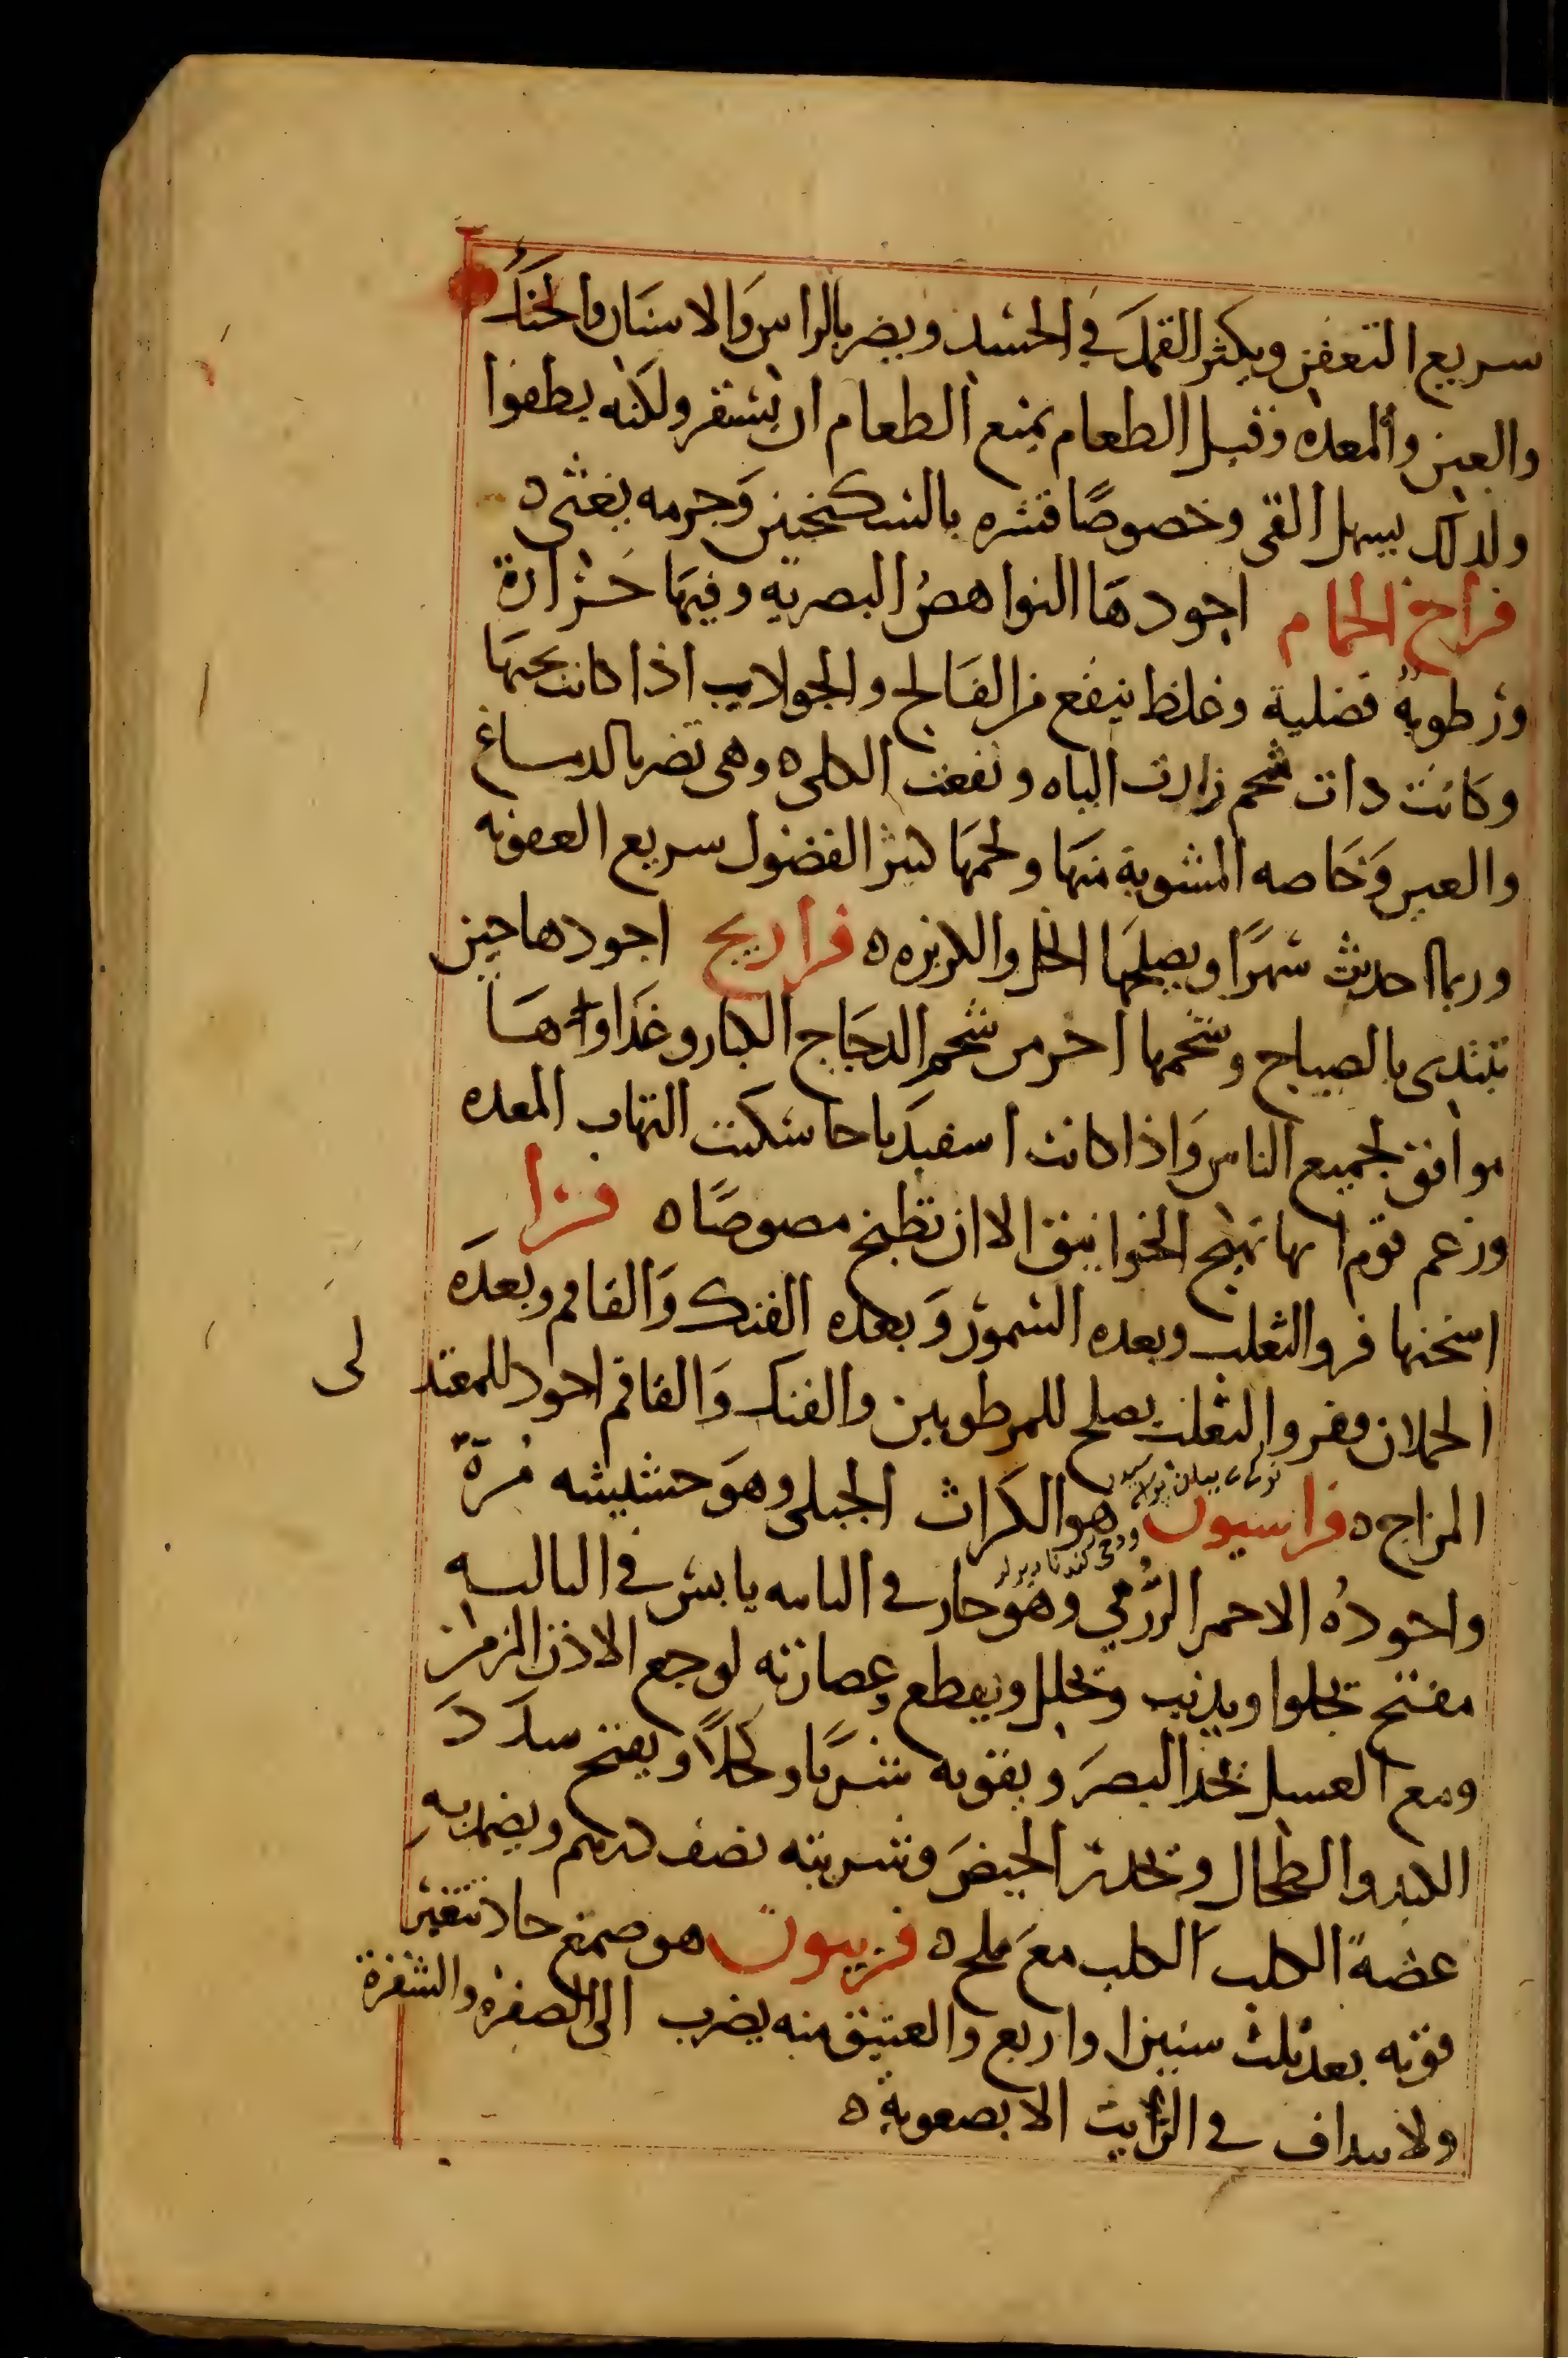 سريع التعفن ويكثر القمل في الجسد ويضر بالراس والاسنان والحنك
والعين والمعده وقبل الطعام يمنع الطعام ان يستقر ولكنه يطفوا
ولذلك يسهل القى وخصوصًا قشره بالسكنجبين وجرمه يغثى ه
فراخ الحمام اجودها النواهض البصريه وفيها حزارة
ورطوبة فضلية وغلظ ينفع من الفالج والجولايب اذا كانت بحمها
وكانت ذات شحم زادت الباه ونفعت الكلى ه وهى تضر بالدماغ
والعين وخاصه المشوية منها ولحمها كثير الفضول سريع العفونه
وربما احدث سهرًا ويصلحها الخل والكزبره ه فراريج اجودها حين
تبتدى بالصياح وشحمها احر من شحم الدجاج الكبار وغذاوها
موافق لجميع الناس واذا كانت اسفيدباجا سكنت التهاب المعده
وزعم قوم انها تهيج الخوانيق الا ان تطبخ مصوصًا ه فرا
اسخنها فرو الثعلب وبعده السمور وبعده الفنك والقاقم وبعده
الحملان وفرو الثعلب يصلح للمرطوبين والفنك والقاقم اجود للمعتد لى
المزاج ه فراسيون هو الكراث الجبلى وهو حشيشه مرة
واجوده الاحمر الرومي وهو حار في الثانيه يابس في الثالثه
مفتح يجلوا ويذيب ويحلل ويقطع وعصارته لوجع الاذن المزمن
ومع العسل يحد البصر ويقويه شربًا وكحلًا ويفتح سدد
الكبد والطحال ويحدر الحيض وشربته نصف درهم ويضمد به
عضة الكلب الكلب مع ملح ه فربيون هو صمغ حاد تتغير
قوته بعد ثلث سنين او اربع والعتيق منه يضرب الى الصفرة والشقرة
ولا ينداف في الزيت الا بصعوبة ه